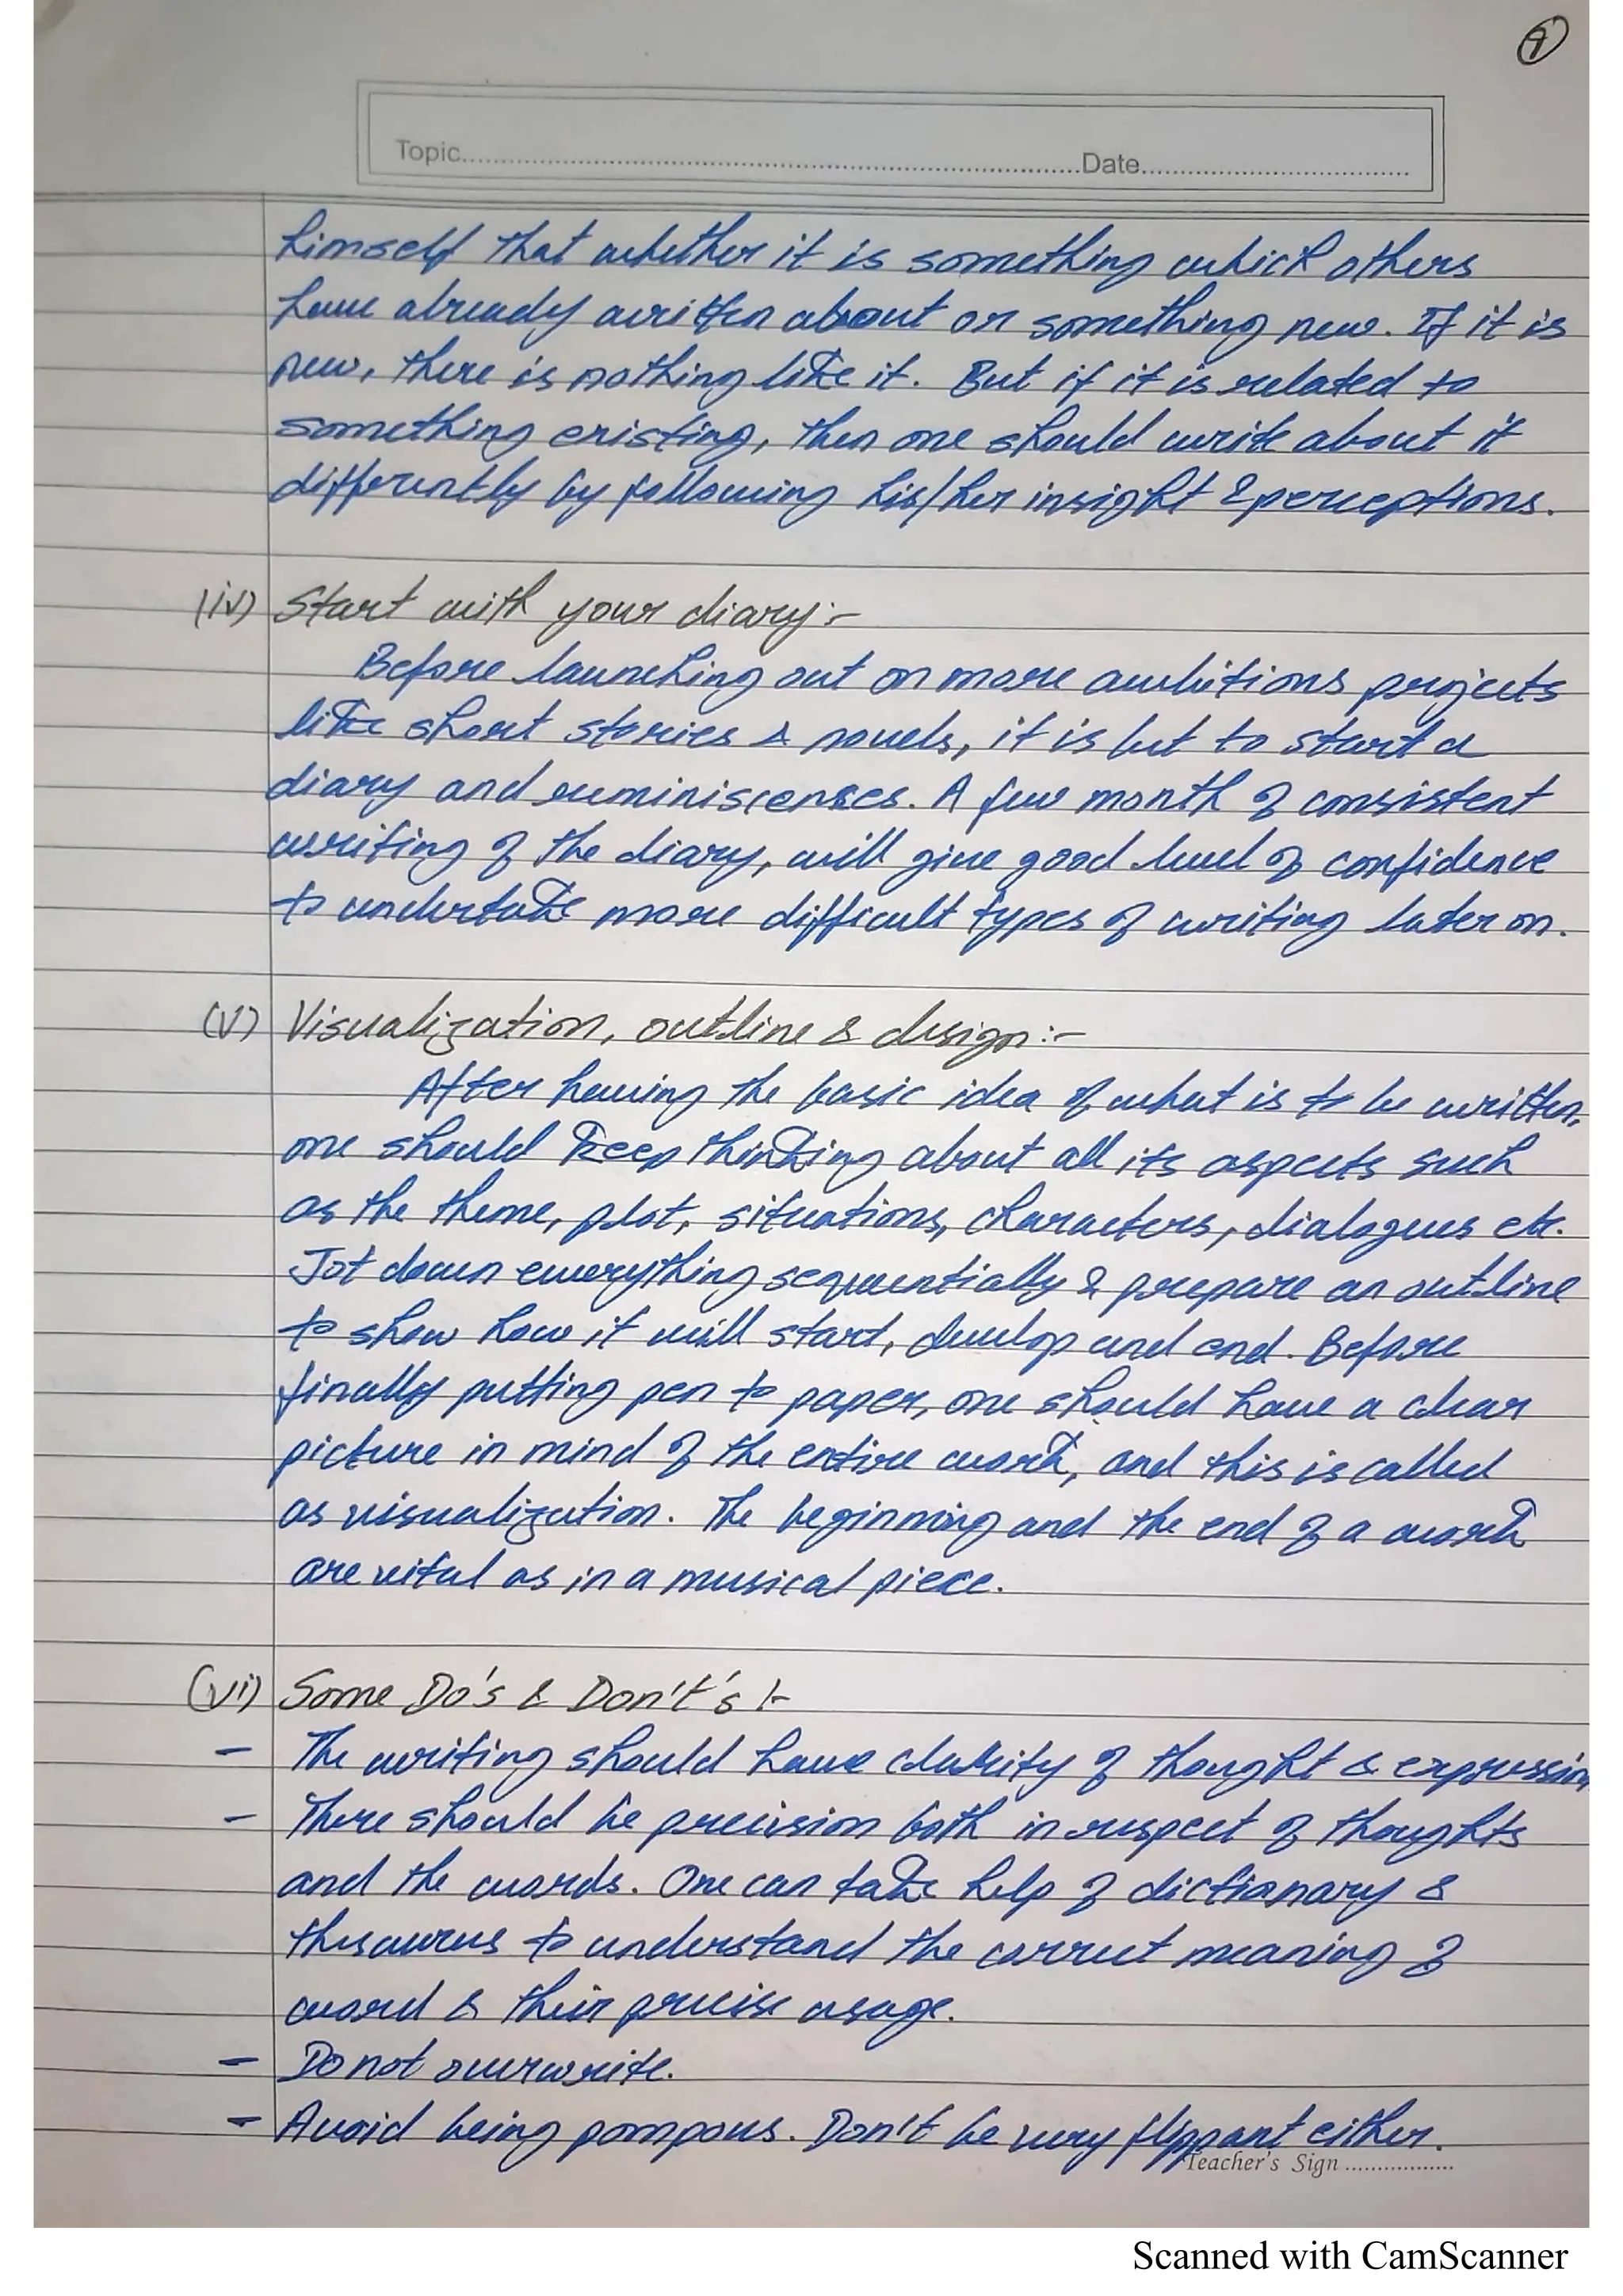 7
Topic.....................Date.....................
himself that whether it is something which others
have already written about or something new. If it is
new, there is nothing like it. But if it is related to
something existing, then one should write about it
differently by following his/her insight & perceptions.
(iv) Start with your diary:-
Before launching out on more ambitions projects
like short stories & novels, it is but to start a
diary and reminiscenses. A few month of consistent
writing of the diary, will give good level of confidence
to undertake more difficult types of writing later on.
(v) Visualization, outline & design:-
After having the basic idea of what is to be written,
one should keep thinking about all its aspects such
as the theme, plot, situations, characters, dialogues etc.
Jot down everything sequentially & prepare an outline
to show how it will start, develop and end. Before
finally putting pen to paper, one should have a clear
picture in mind of the entire work, and this is called
as visualization. The beginning and the end of a work
are vital as in a musical piece.
(vi) Some Do's & Don't's :-
- The writing should have clarity of thought & expression
- There should be precision both in respect of thoughts
and the words. One can take help of dictionary &
thesaurus to understand the correct meaning of
word & their precise usage.
- Do not overwrite.
- Avoid being pompous. Don't be very flippant either.
Teacher's Sign ..................
Scanned with CamScanner